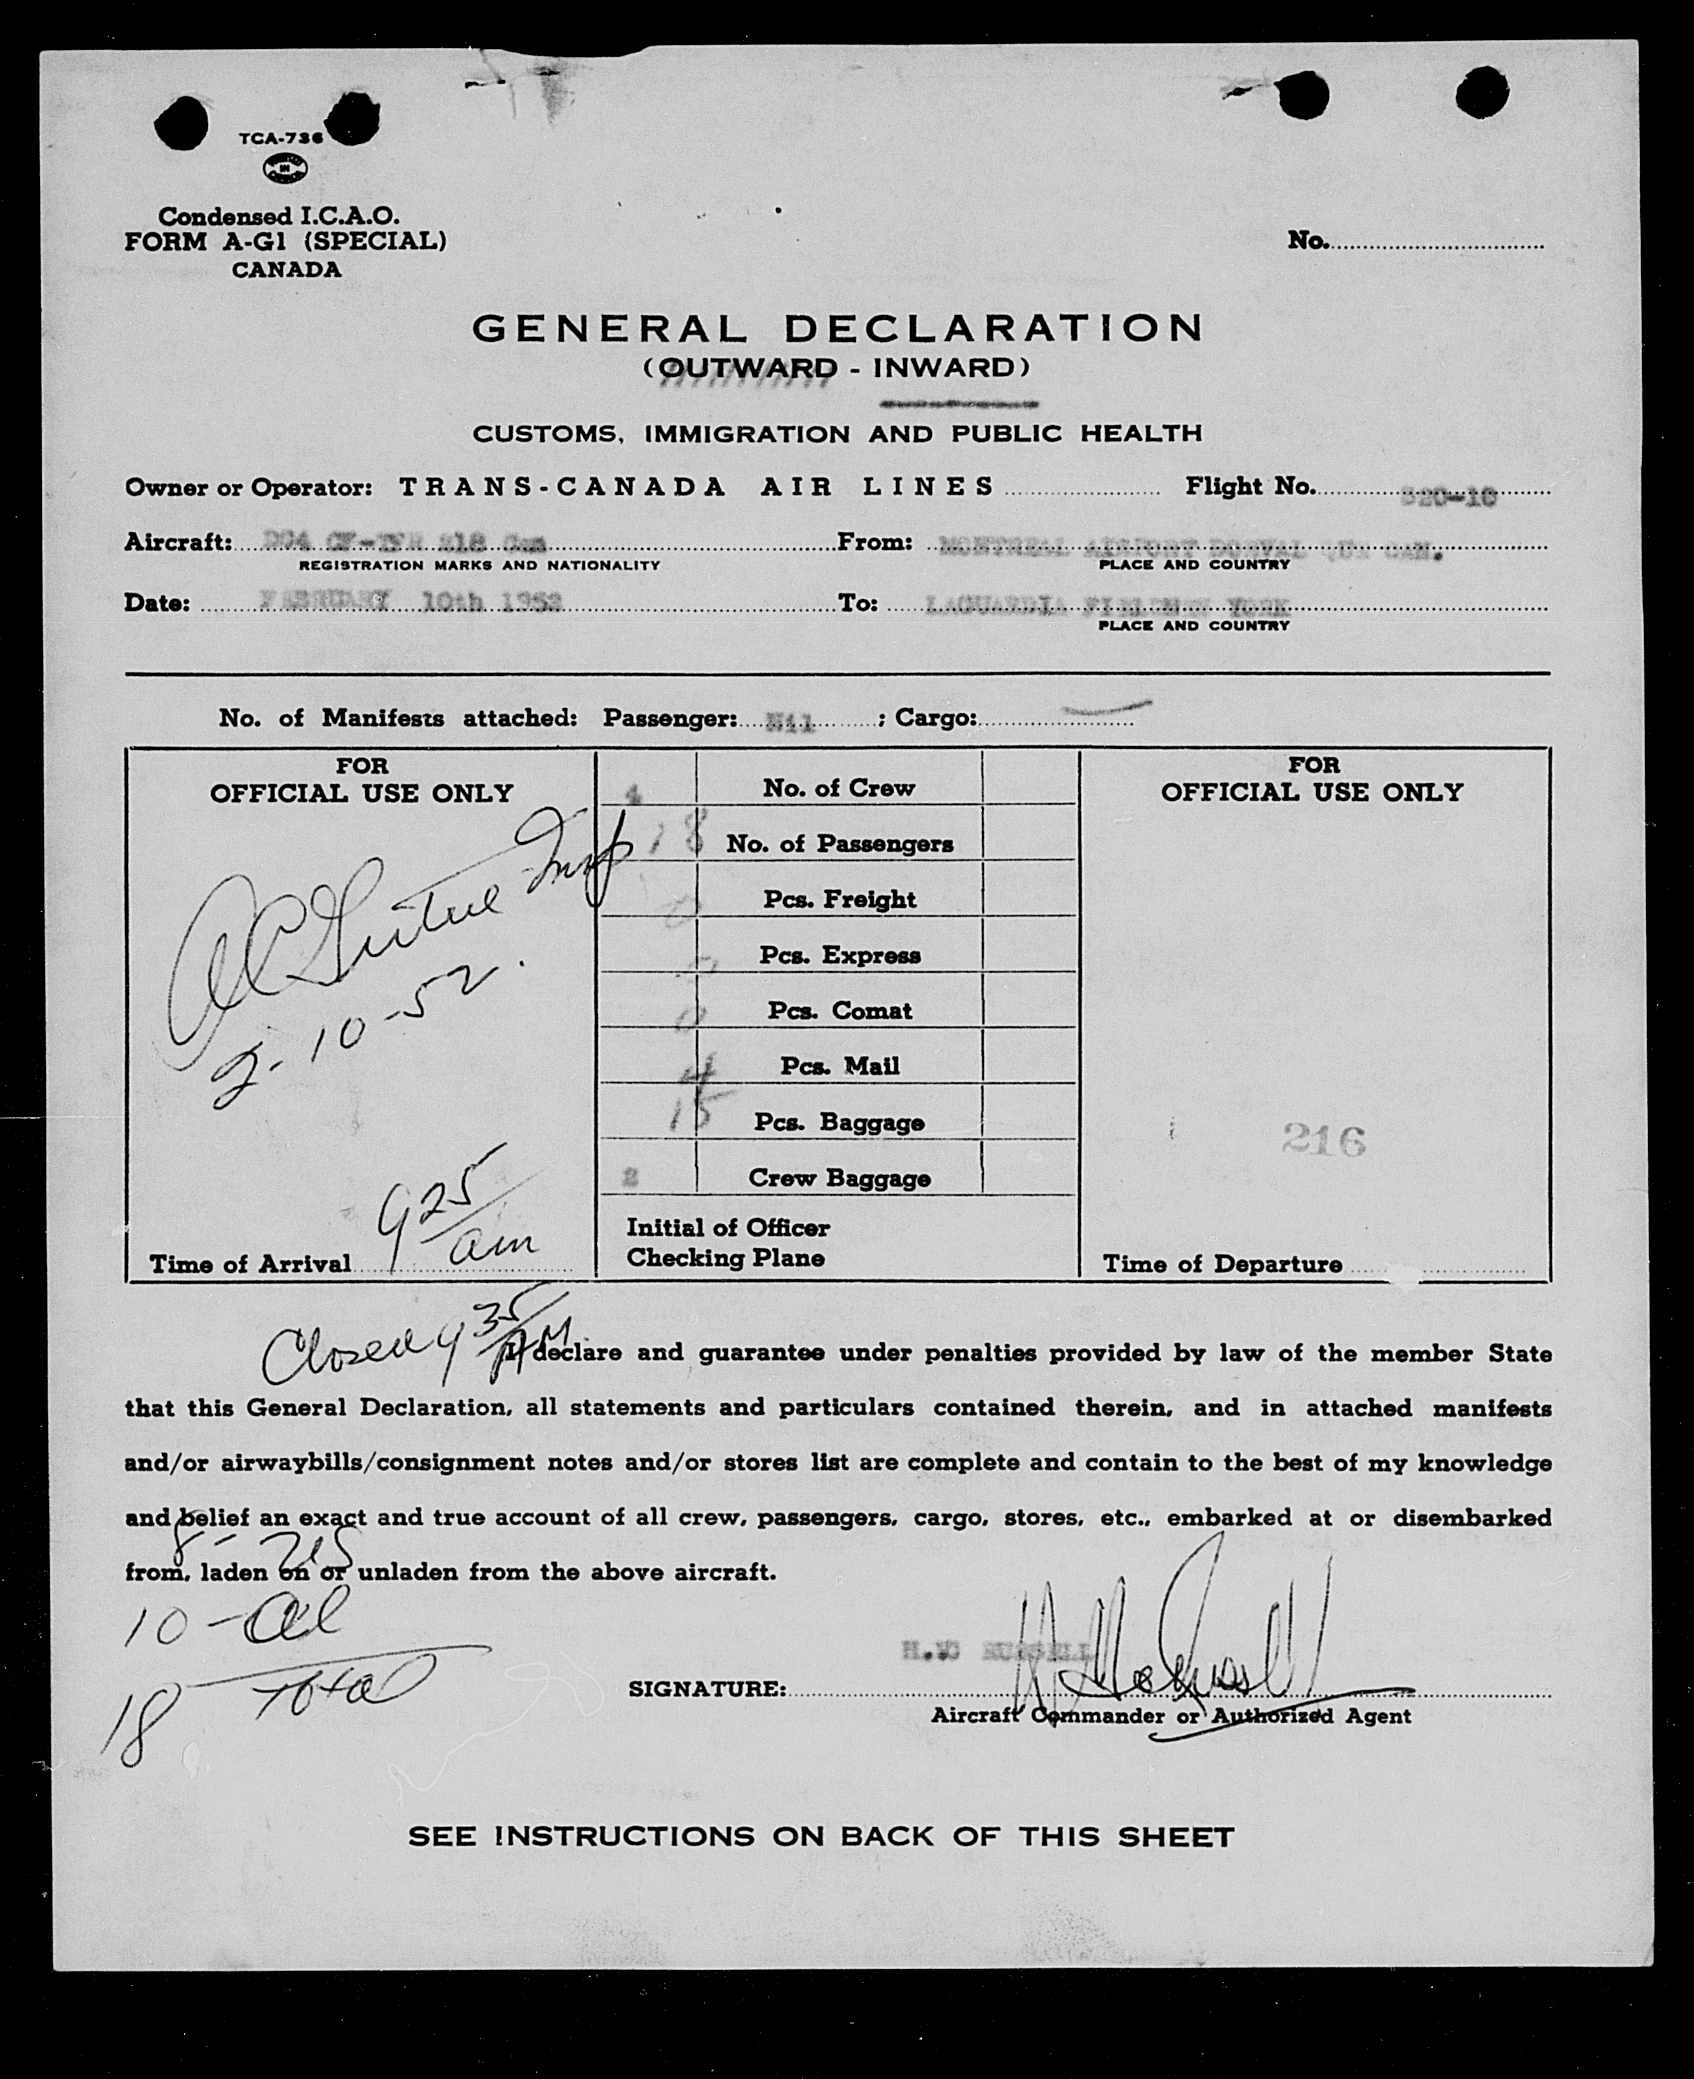 TCA-736
Condensed I.C.A.O.
FORM A-G1 (SPECIAL)
CANADA
No.
GENERAL DECLARATION
(OUTWARD - INWARD)
CUSTOMS, IMMIGRATION AND PUBLIC HEALTH
Owner or Operator: TRANS-CANADA AIR LINES Flight No. 820-10
Aircraft: DC4 218 Can From: MONTREAL AIRPORT DORVAL QUE CAN.
REGISTRATION MARKS AND NATIONALITY PLACE AND COUNTRY
Date: FEBRUARY 10th 1952 To: LAGUARDIA FIELD YORK
PLACE AND COUNTRY
No. of Manifests attached: Passenger: Nil ; Cargo:
FOR
OFFICIAL USE ONLY
2-10-52.
925
am
Time of Arrival
4 No. of Crew
18 No. of Passengers
0 Pcs. Freight
0 Pcs. Express
0 Pcs. Comat
4 Pcs. Mail
15 Pcs. Baggage
2 Crew Baggage
Initial of Officer
Checking Plane
FOR
OFFICIAL USE ONLY
216
Time of Departure
Closed 9 35
AM
I declare and guarantee under penalties provided by law of the member State
that this General Declaration, all statements and particulars contained therein, and in attached manifests
and/or airwaybills/consignment notes and/or stores list are complete and contain to the best of my knowledge
and belief an exact and true account of all crew, passengers, cargo, stores, etc., embarked at or disembarked
from, laden on or unladen from the above aircraft.
8-
10-
18 Total
RUSSELL
SIGNATURE:
Aircraft Commander or Authorized Agent
SEE INSTRUCTIONS ON BACK OF THIS SHEET